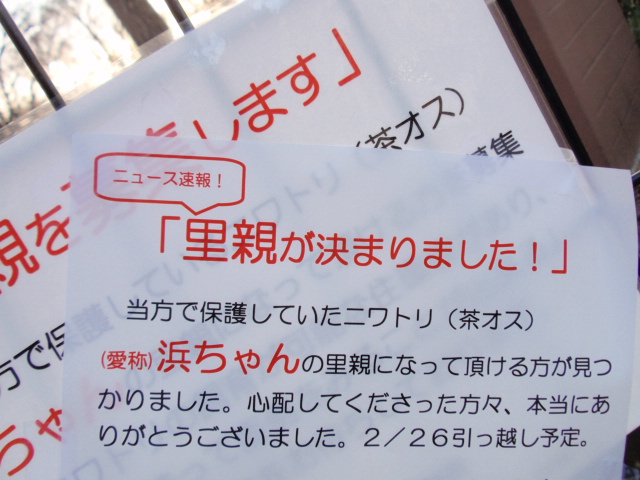 親を募集します」
（茶オス）
募集
方で保
ちゃん
ニュース速報！
「里親が決まりました！」
当方で保護していたニワトリ（茶オス）
(愛称)浜ちゃんの里親になって頂ける方が見つ
かりました。心配してくださった方々、本当にあ
りがとうございました。２／２６引っ越し予定。